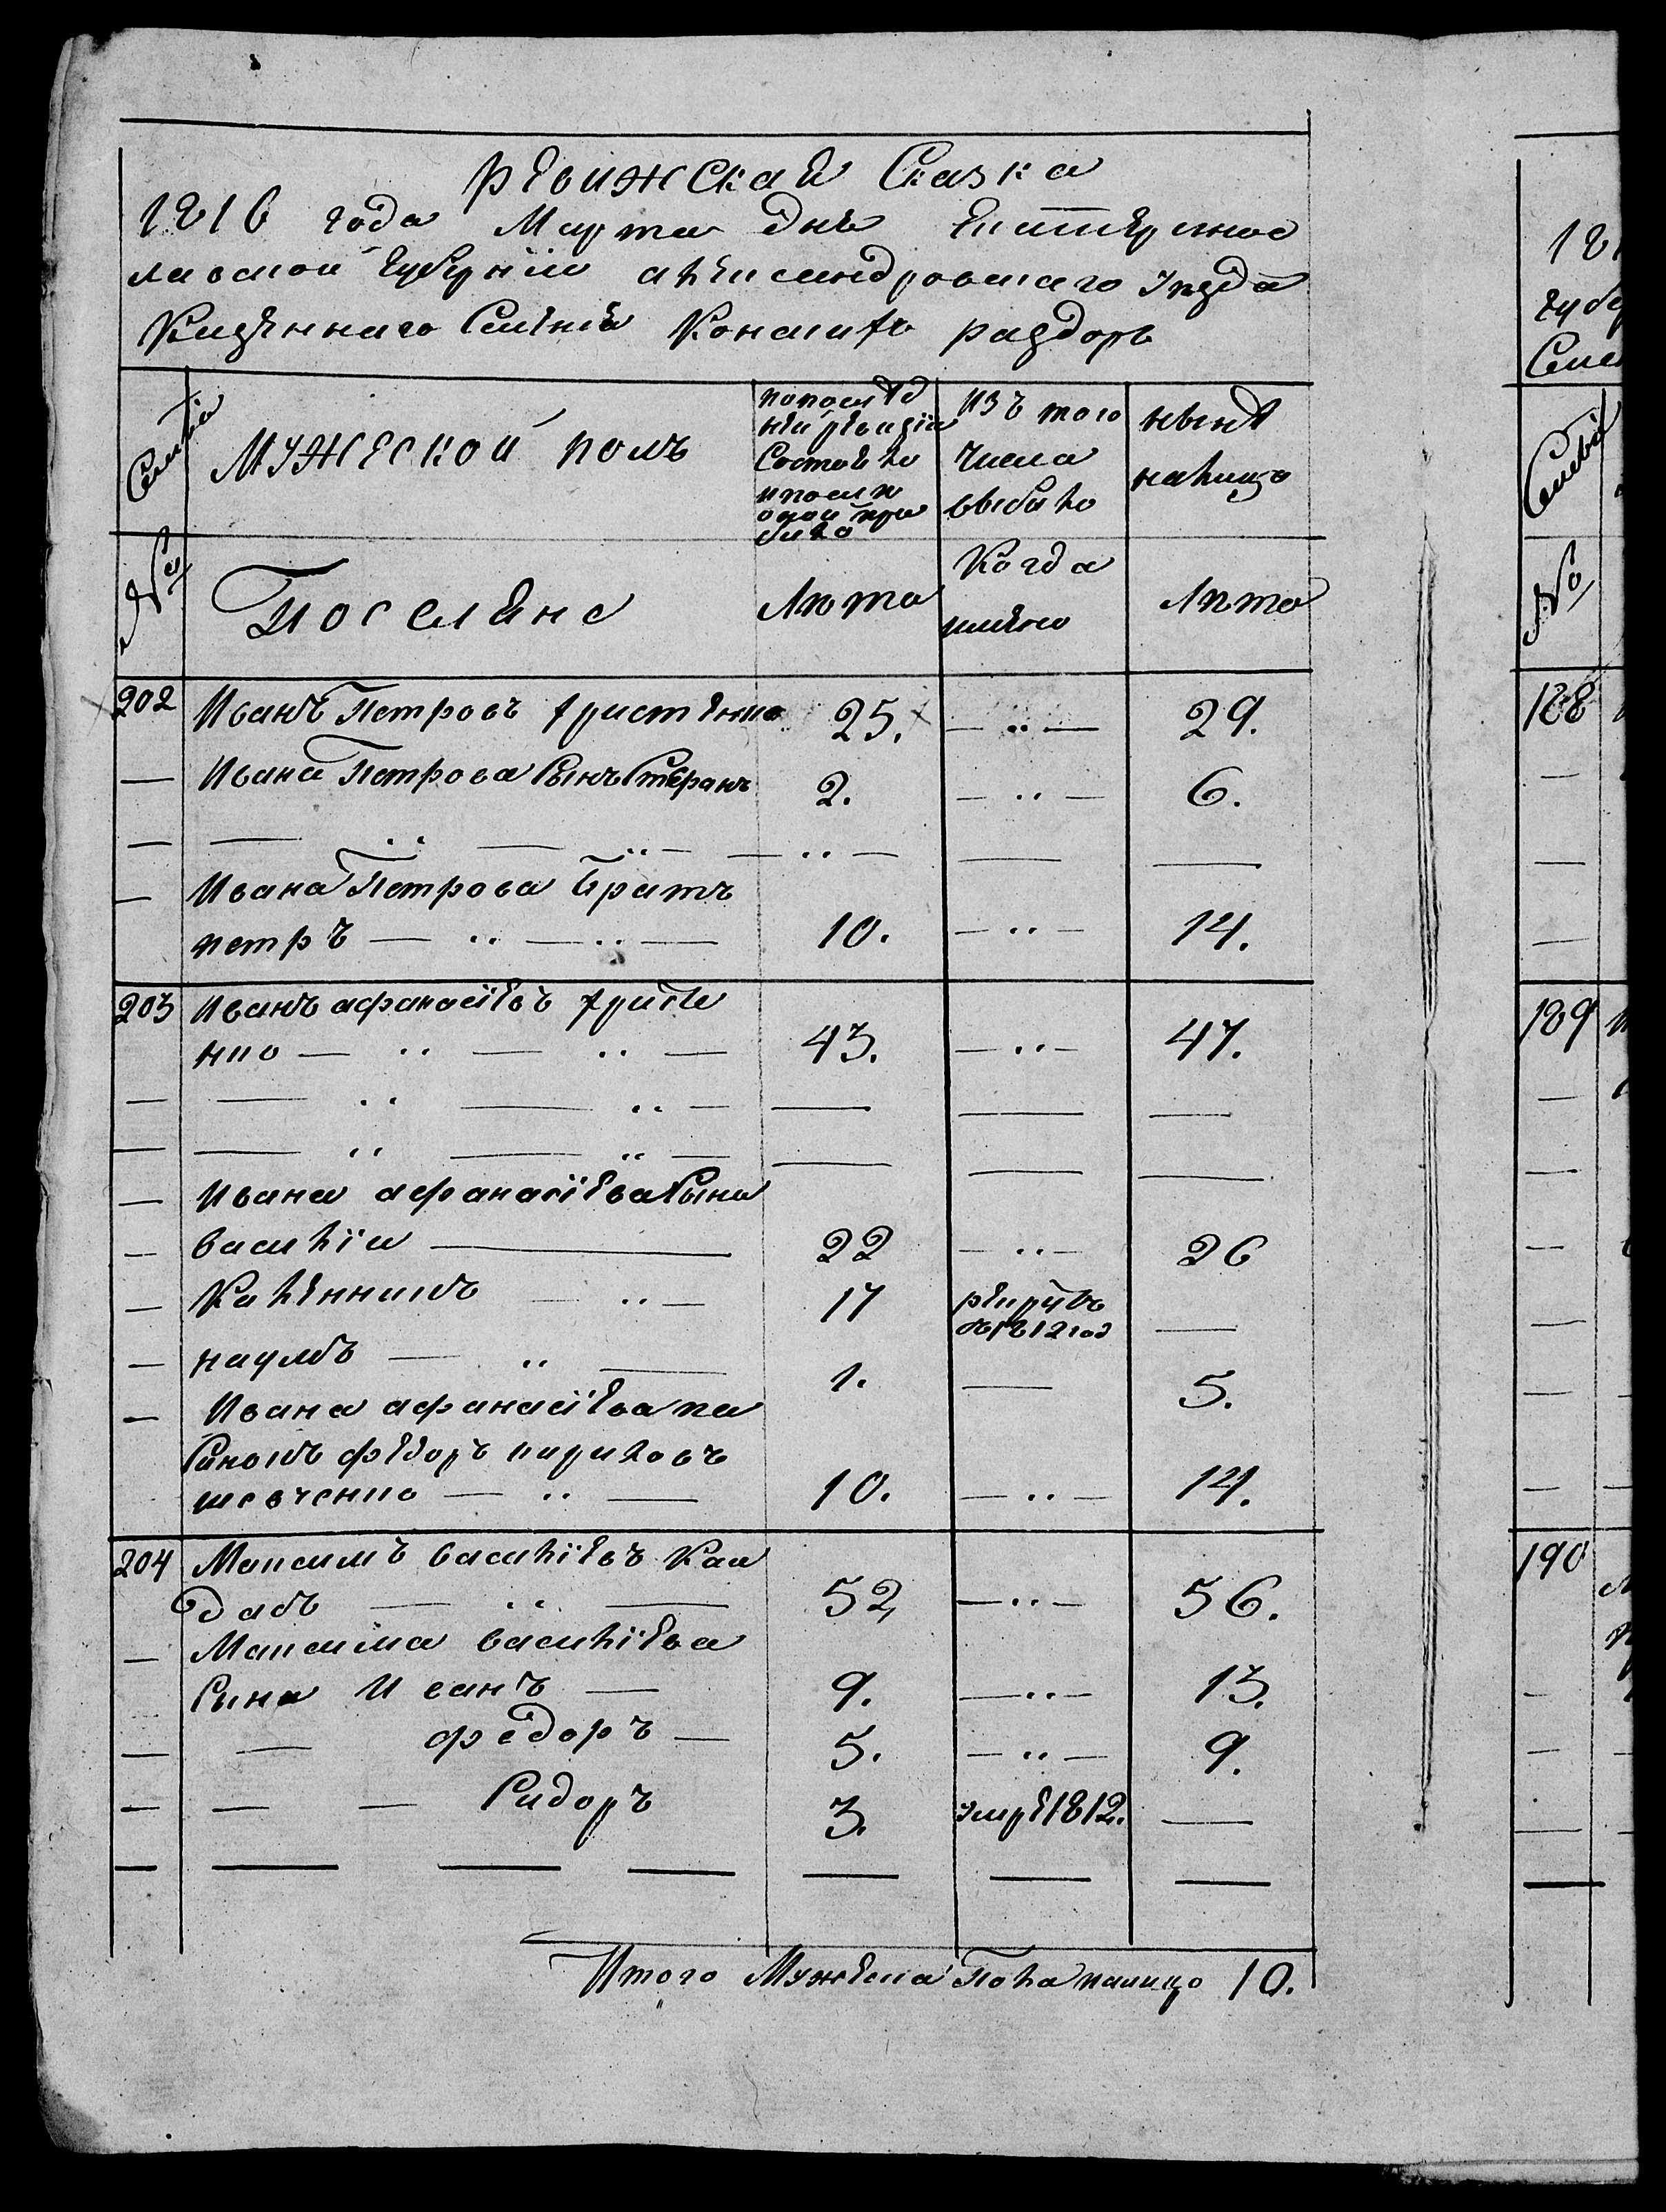 ревижская Сказка
1816 года Марта дня Екатеринос
лавской губернии александровскаго уезда
Казенного Селения Конскихъ раздоръ
Семьи
Мужеской полъ
попослѣд
ней ревизіи
Состояло
ипослѣ
оной при
было
изъ того
числа
выбыло
нынѣ
налицо
№
Поселяне
Лѣта
Когда
именно
Лѣта
202 Иванъ Петровъ христенко 25. — .. — 29.
— Ивана Петрова Сынъ Стефанъ 2. — .. — 6.
— Ивана Петрова Братъ
петръ — .. — .. — 10. — .. — 14.
203 Иванъ афанасіевъ христе
нко — .. — .. — 43. — .. — 47.
— Ивана афанасіева Сына
— василіи — 22 — .. — 26
— Каленникъ — .. — 17 рекрутъ
въ 1812 год —
— наумъ — .. — 1. — 5.
— Ивана афанасіева па
Синокъ федоръ кириловъ
шевченко — .. — 10. — .. — 14.
204 Максимъ василіевъ Кан
дабъ — .. — 52, — .. — 56.
— Максима василіева
Сына Иванъ — 9. — .. — 13.
— — федоръ — 5. — .. — 9.
— — — Сидоръ 3. умре 1812. —
Итого Мужеска Пола налицо 10.
181
губер
Семьи
№
188
189
190